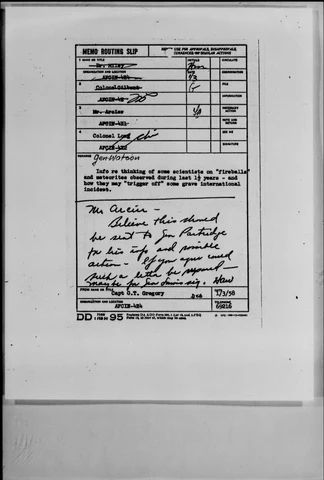 MEMO ROUTING SLIP
NEVER USE FOR APPROVALS, DISAPPROVALS, CONCURRENCES, OR SIMILAR ACTIONS
1 NAME OR TITLE
Mr. Riley
INITIALS
CIRCULATE
ORGANIZATION AND LOCATION
DATE
COORDINATION
2
Colonel Gilbert
FILE
INFORMATION
3
Mr. Arcier
NECESSARY ACTION
AFCIN-4X1
NOTE AND RETURN
4
Colonel
SEE ME
SIGNATURE
REMARKS
Gen Watson
Info re thinking of some scientists on "fireballs"
and meteorites observed during last 1½ years - and
how they may "trigger off" some grave international
incident.
Mr Arcier -
Believe this should
be sent to Gen Partridge
for his info and possible
action - If you agree would
such a letter be prepared -
maybe for Gen Lewis sig.
FROM NAME OR TITLE
Capt G.T. Gregory
DATE
4/3/58
ORGANIZATION AND LOCATION
AFCIN-4E4
TELEPHONE
69216
DD FORM 95
1 FEB 50